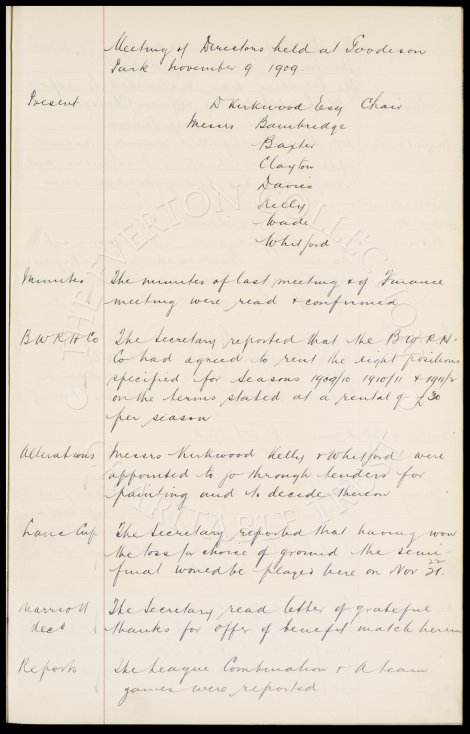 Meeting of Directors held at Goodison
Park November 9 1909.
Present D Kirkwood Esq Chair
Messrs Bainbridge
Baxter
Clayton
Davies
Kelly
Wade
Whitford
Minutes The minutes of last meeting & of Finance
meeting were read & confirmed
B W R H Co The Secretary reported that the B W R H.
Co had agreed to rent the eight positions
specified for seasons 1909/10 1910/11 & 1911/2
on the terms stated at a rental of £30
per season
Alterations Messrs Kirkwood Kelly & Whitford were
appointed to go through tenders for
painting and to decide thereon
Lancs Cup The Secretary reported that having won
the toss for choice of ground the semi-
final would be played here on Nov 22
Marriott The Secretary read letter of grateful
decd thanks for offer of benefit match herein
Reports The League Combination & A team
games were reported
THE EVERTON COLLECTION
CHARITABLE TRUST